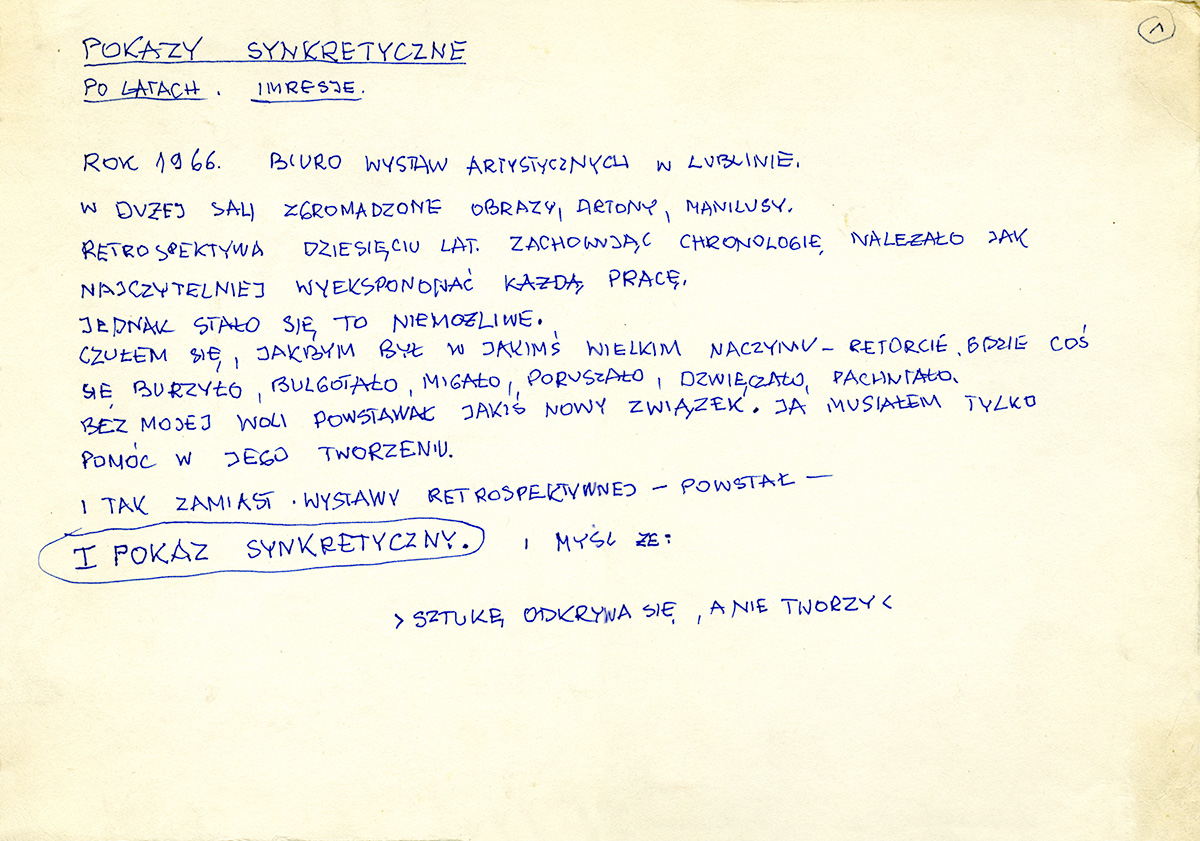 1
POKAZY SYNKRETYCZNE
PO LATACH. IMRESJE.
ROK 1966. BIURO WYSTAW ARTYSTYCZNYCH W LUBLINIE.
W DUŻEJ SALI ZGROMADZONE OBRAZY, ARTONY, MANILUSY.
RETROSPEKTYWA DZIESIĘCIU LAT. ZACHOWUJĄC CHRONOLOGIĘ NALEŻAŁO JAK
NAJCZYTELNIEJ WYEKSPONOWAĆ KAŻDĄ PRACĘ.
JEDNAK STAŁO SIĘ TO NIEMOŻLIWE.
CZUŁEM SIĘ, JAKBYM BYŁ W JAKIMŚ WIELKIM NACZYNIU – RETORCIE, GDZIE COŚ
SIĘ BURZYŁO, BULGOTAŁO, MIGAŁO, PORUSZAŁO, DŹWIĘCZAŁO, PACHNIAŁO.
BEZ MOJEJ WOLI POWSTAWAŁ JAKIŚ NOWY ZWIĄZEK. JA MUSIAŁEM TYLKO
POMÓC W JEGO TWORZENIU.
I TAK ZAMIAST WYSTAWY RETROSPEKTYWNEJ – POWSTAŁ –
I POKAZ SYNKRETYCZNY. I MYŚL ŻE:
> SZTUKĘ ODKRYWA SIĘ, A NIE TWORZY <